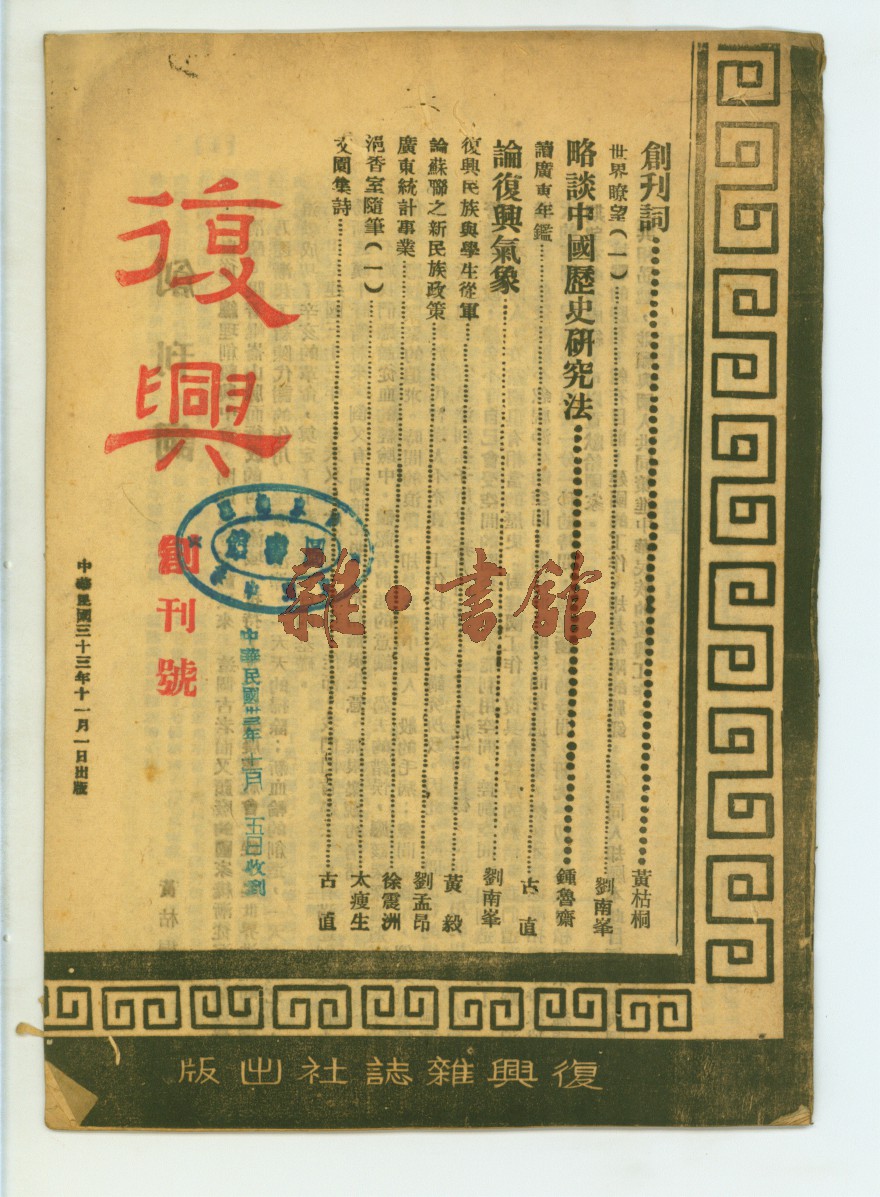 創刊詞…………黃枯桐
世界瞭望(一)…………劉南峯
略談中國歷史研究法…………鍾魯齋
讀廣東年鑑…………古 直
論復興氣象…………劉南峯
復興民族與學生從軍…………黃 毅
論蘇聯之新民族政策…………劉孟昂
廣東統計事業…………徐震洲
浥香室隨筆(一)…………太瘦生
文園集詩…………古 直
復興
創刊號
中華民國三十三年十一月一日出版
中華民國卅三年十二月 五日收到
圖書館
雜·書館
復興雜誌社出版